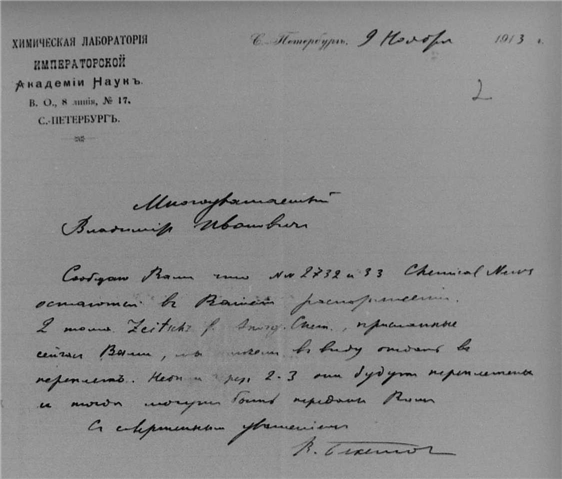 ХИМИЧЕСКАЯ ЛАБОРАТОРІЯ
ИМПЕРАТОРСКОЙ
Академіи Наукъ.
В. О., 8 линія, № 17.
С.-ПЕТЕРБУРГЪ.
С.-Петербургъ, 9 Ноября 1913 г.
2
Многоуважаемый
Владимір Иванович
Сообщаю Вам что №№ 2732 и 33 Chemical News
остаются в Вашем распоряжении.
2 тома Zeitschr. f. Anorg. Chem., присланные
сейчас Вами, в виду отдать в
переплет. 2-3 они будут переплетены
и тогда могут быть переданы Вам
С совершенным уважением